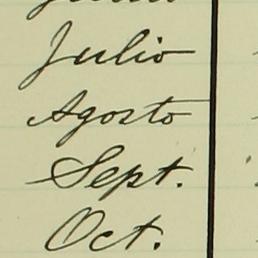 Julio
Agosto
Sept.
Oct.